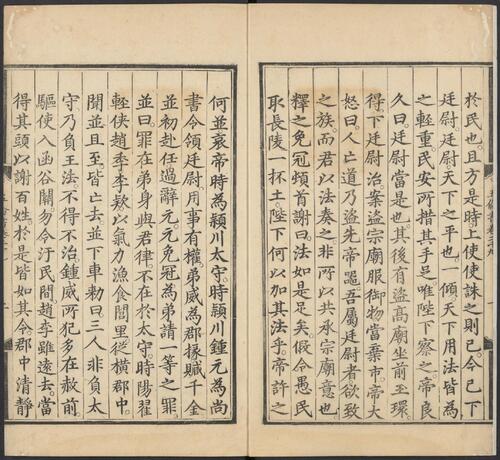 於民也且方是時上使使誅之則已今已下
廷尉廷尉天下之平也一傾天下用法皆為
之輕重民安所措其手足唯陛下察之帝良
久曰廷尉當是也其後有盜高廟坐前玉環
得下廷尉治案盜宗廟服御物當棄市帝大
怒曰人亡道乃盜先帝噐吾属廷尉者欲致
之族而君以法奏之非所以共承宗廟意也
釋之免冠頓首謝曰法如是足矣假令愚民
取長陵一抔土陛下何以加其法乎帝許之
何並哀帝時為潁川太守時潁川鍾元為尚
書令領廷尉用事有權弟威為郡掾贓千金
並初赴任過辭元元免冠為弟請一等之罪
並曰罪在弟身與君律不在於太守時陽翟
輕俠趙季李欵以氣力漁食閭里從橫郡中
聞並且至皆亡去並下車勑曰三人非負太
守乃負王法不得不治鍾威所犯多在赦前
驅使入函谷關勿令汙民間趙李雖遠去當
得其頭以謝百姓於是皆如其令郡中清靜